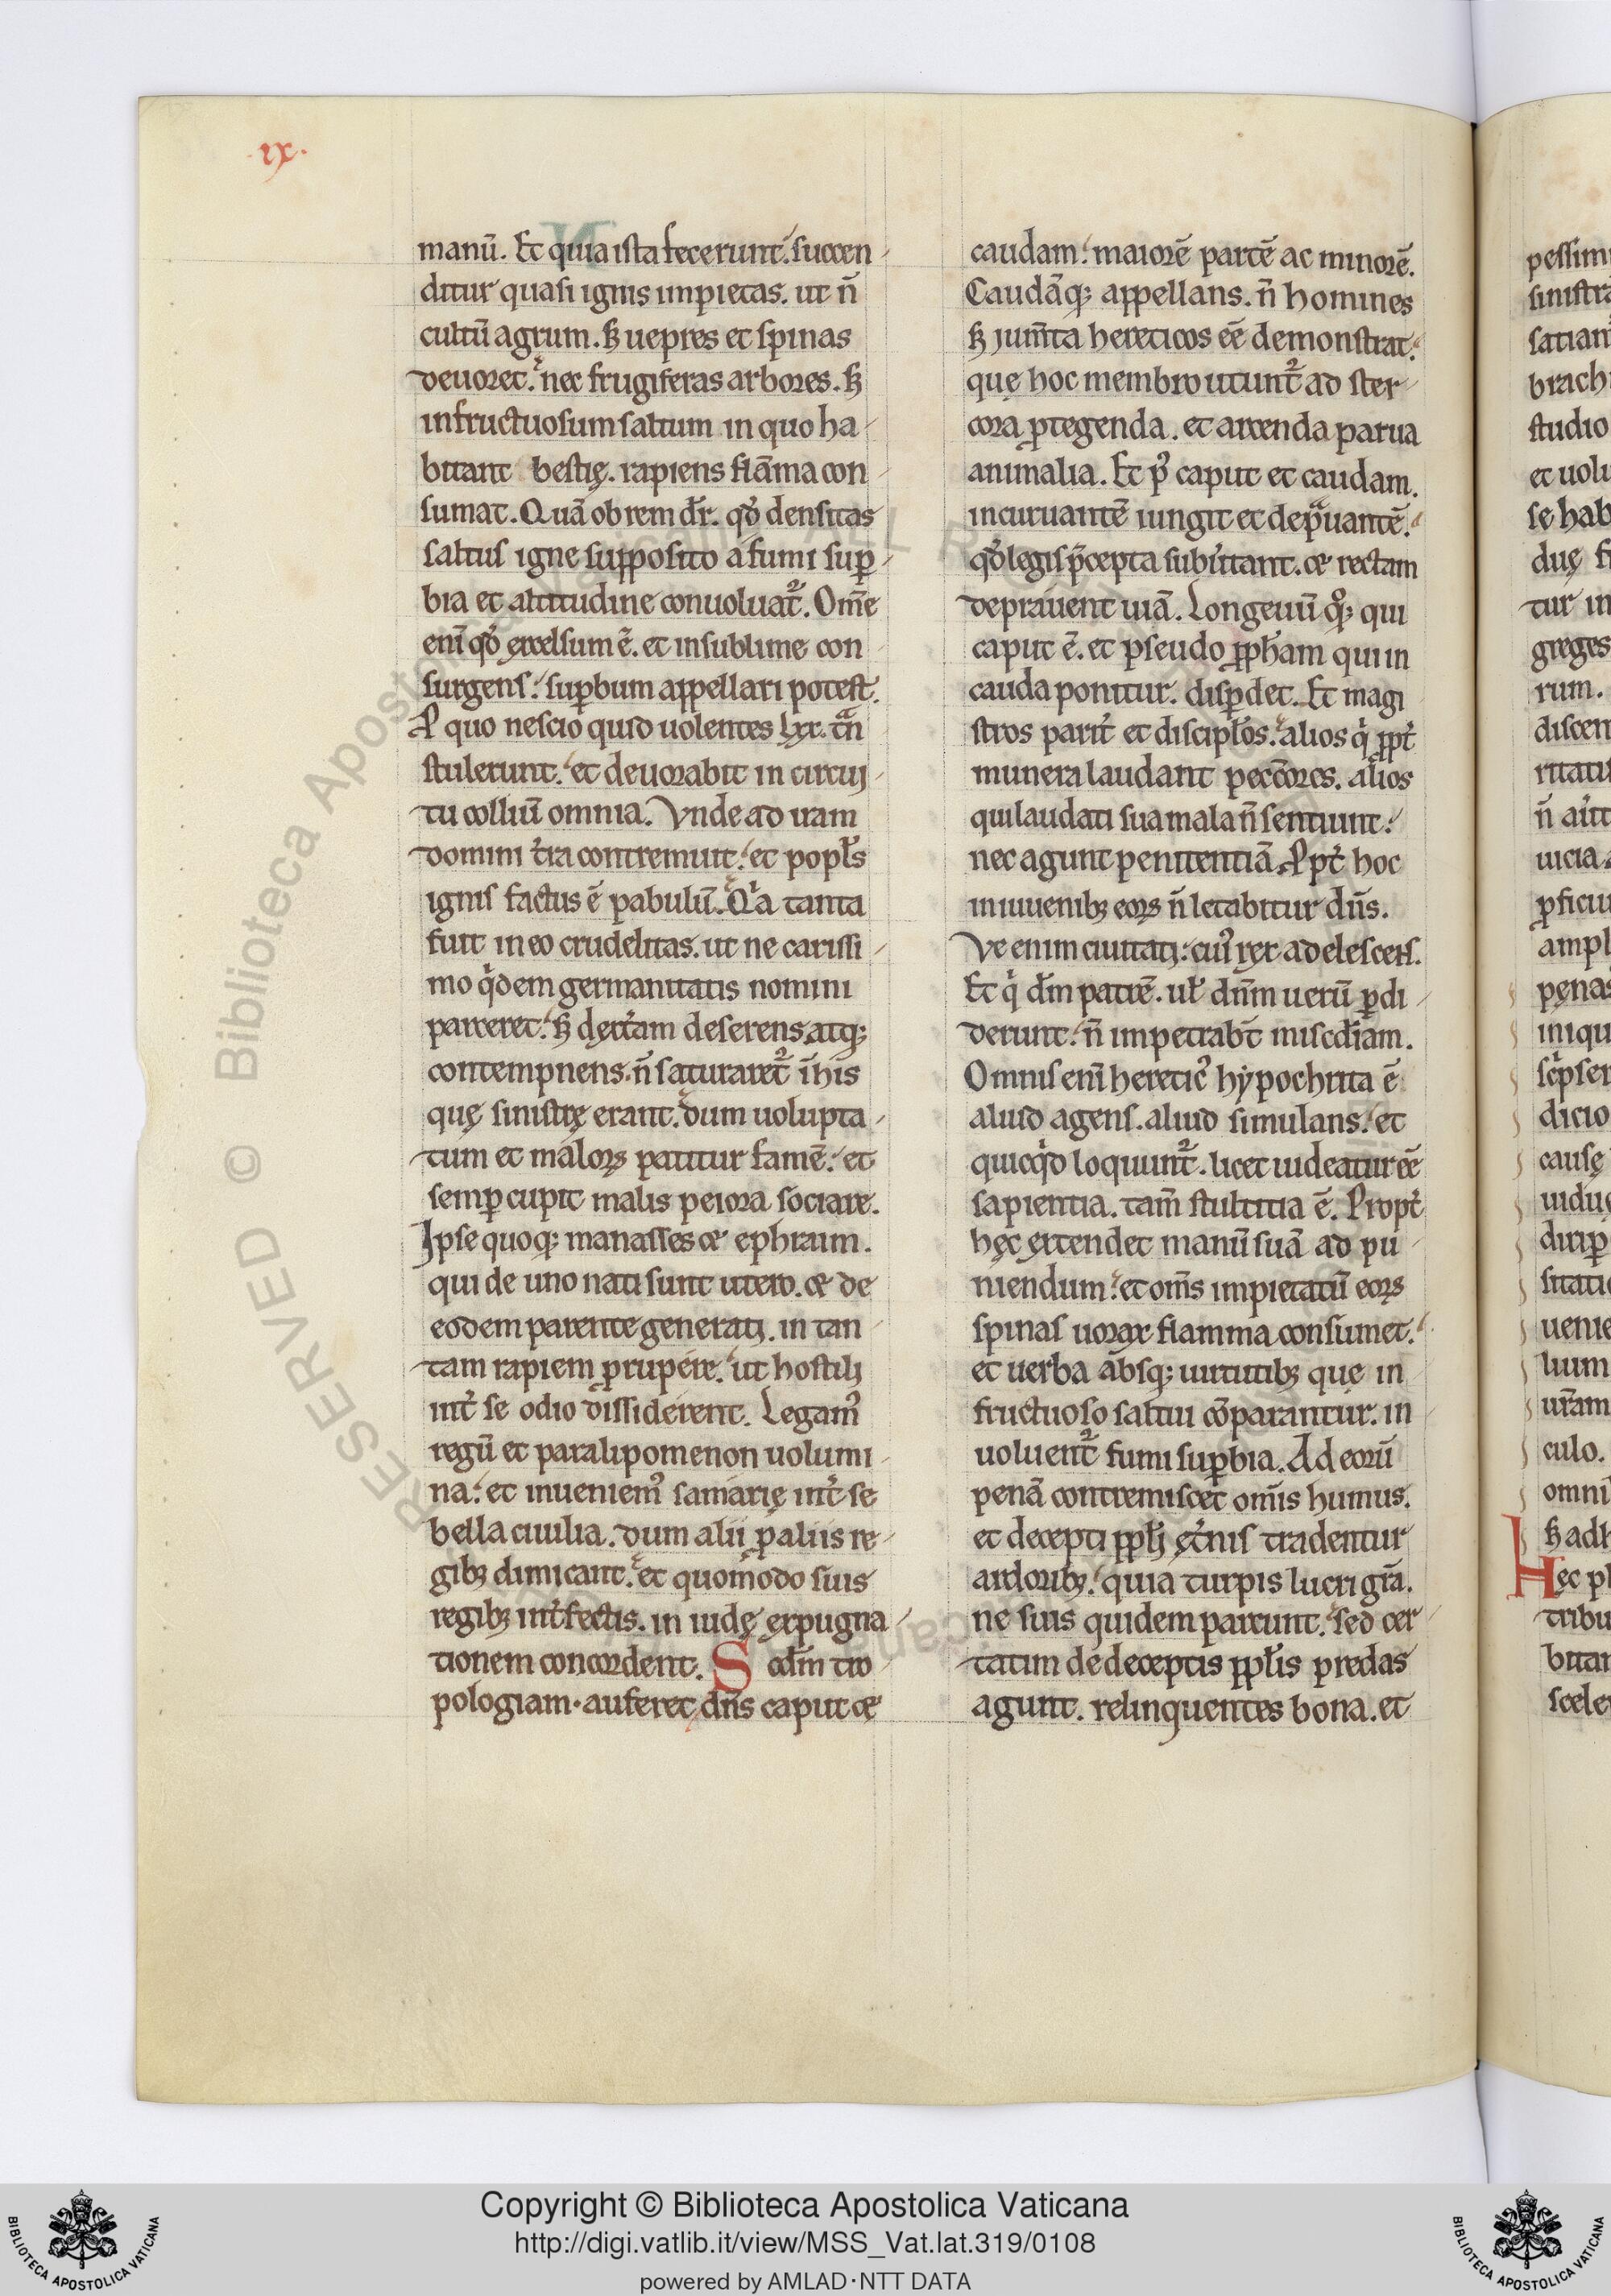 ·ix·
manū. Et quia ista fecerunt. succen
ditur quasi ignis impietas. ut n̄
cultū agrum. sꝫ uepres et spinas
deuoret. nec frugiferas arbores. sꝫ
infructuosum saltum in quo ha
bitant bestię. rapiens flāma con
sumat. Quā ob rem dr̄. qď densitas
saltus igne supposito a fumi suꝑ
bia et altitudine conuoluat᷑. Om̄e
eni̅ qď excelsum ē. et in sublime con
surgens. suꝑbum appellari potest.
P quo nescio quid uolentes lxx. tᷓn
stulerunt. et deuorabit in circui
tu colliū omnia. Vnde ad iram
domini t̓ra contremuit. et popl̓s
ignis factus ē pabulū. Qͥa tanta
fuit in eo crudelitas. ut ne carissi
mo qͥdem germanitatis nomini
parceret. sꝫ dext̓am deserens atqꝫ
contempnens. n̄ saturaret᷑ in̄ his
quę sinistrę erant. dum uolupta
tum et maloꝝ patitur famē. et
semꝑ cupit malis peiora sociare.
Ipse quoqꝫ manasses & ephraim.
qui de uno nati sunt utero. & de
eodem parente generati. in tan
tam rapiem ꝓrupere. ut hostili
int̓ se odio dissiderent. Legamꝰ
regū et paralipomenon uolumi
na. et inueniemꝰ samarię int̓ se
bella ciuilia. dum alii ꝓ aliis re
gibꝫ dimicant. et quomodo suis
regibꝫ int̓fectis. in iudę expugna
tionem concordent. Scdm̄ tro
pologiam. auferet dn̄s caput &
caudam. maiorē partē ac minorē.
Caudāqꝫ appellans. n̄ homines
sꝫ jum̄ta hereticos eē demonstrat.
quę hoc membro utunt᷑ ad ster
cora ꝓtegenda. et arcenda parua
animalia. Et pꝰ caput et caudam.
incuruantē iungit et depᷓuantē.
qď legis p̄cepta sub̓tant. & rectam
deprauent uiā. Longeuū qͦꝫ qui
caput ē. et pseudo ꝓph̄am qui in
cauda ponitur. disꝑdet. Et magi
stros parit̓ et discipl̓os. alios qͥ ꝓpt̓
munera laudant pecc̄ores. alios
qui laudati sua mala n̄ sentiunt.
nec agunt penitentiā. Ppt̓ hoc
in iuuenibꝫ eoꝝ n̄ letabitur dn̄s.
Ve enim ciuitati. cuiꝰ rex adelescens.
Et qͥ dm̄ patrē. ul̓ dn̄m uerū ꝑdi
derunt. n̄ impetrab̄t misc̄diam.
Omnis eni̅ hereticꝰ hypochrita ē
aliud agens. aliud simulans. et
quicqͥd loquunt᷑. licet uideatur eē
sapientia. tam̄ stultitia ē. Propt̓
hęc extendet manū suā ad pu
niendum. et om̄s impietatū eoꝝ
spinas uorax flamma consumet.
et uerba absqꝫ uirtutibꝫ que in
fructuoso saltui cōparantur. in
uoluent᷑ fumi suꝑbia. Ad eorū
penā contremiscet omīs humus.
et decepti ppl̓i ęt̓nis tradentur
ardoribꝫ. quia turpis lucri gr̄a.
ne suis quidem parcunt. sed cer
tatim de deceptis ppl̓is predas
agunt. relinquentes bona. et
Copyright © Biblioteca Apostolica Vaticana
http://digi.vatlib.it/view/MSS_Vat.lat.319/0108
powered by AMLAD·NTT DATA